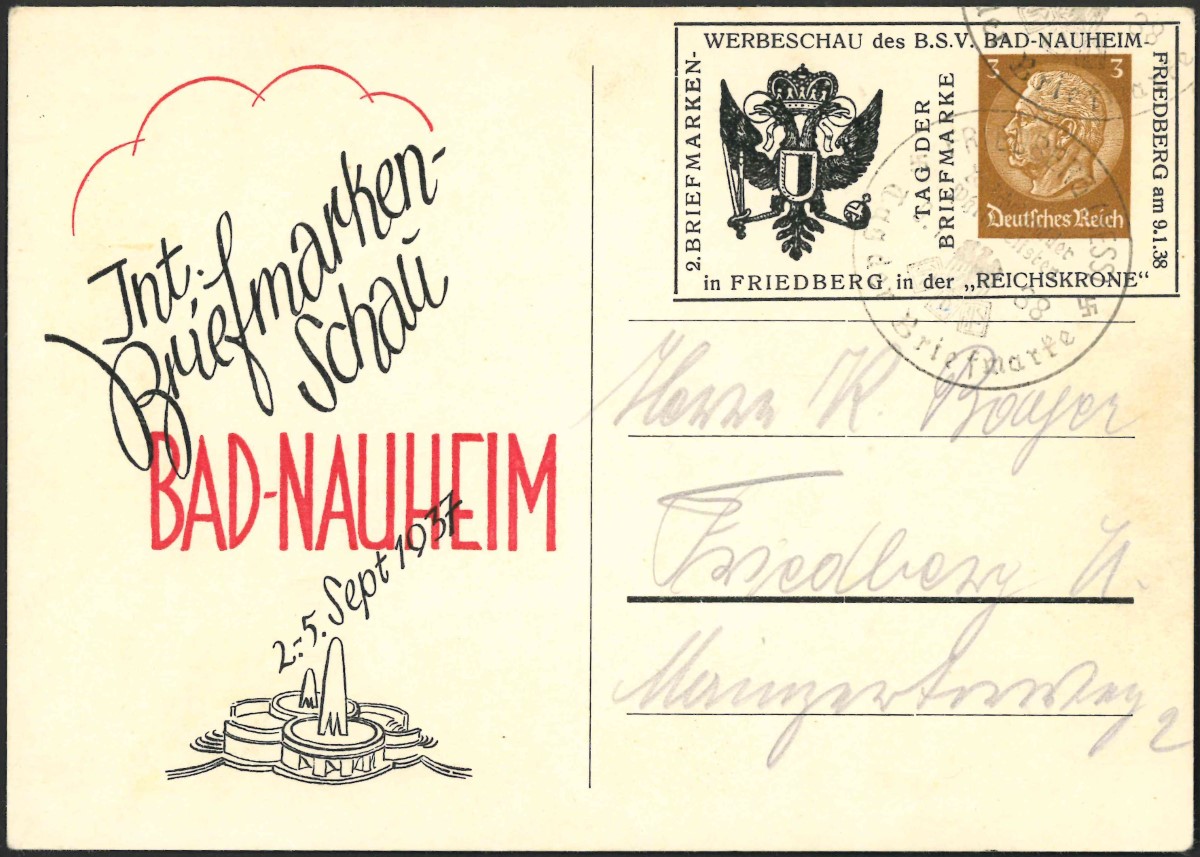 Int.
Briefmarken-
Schau
BAD-NAUHEIM
2.-5. Sept 1937
WERBESCHAU des B.S.V. BAD-NAUHEIM-
FRIEDBERG am 9.1.38
2. BRIEFMARKEN-
TAG DER
BRIEFMARKE
3 3
Deutsches Reich
in FRIEDBERG in der „REICHSKRONE“
Briefmarke
Herrn K. Bayer
Friedberg H.
Mainzertorweg
2